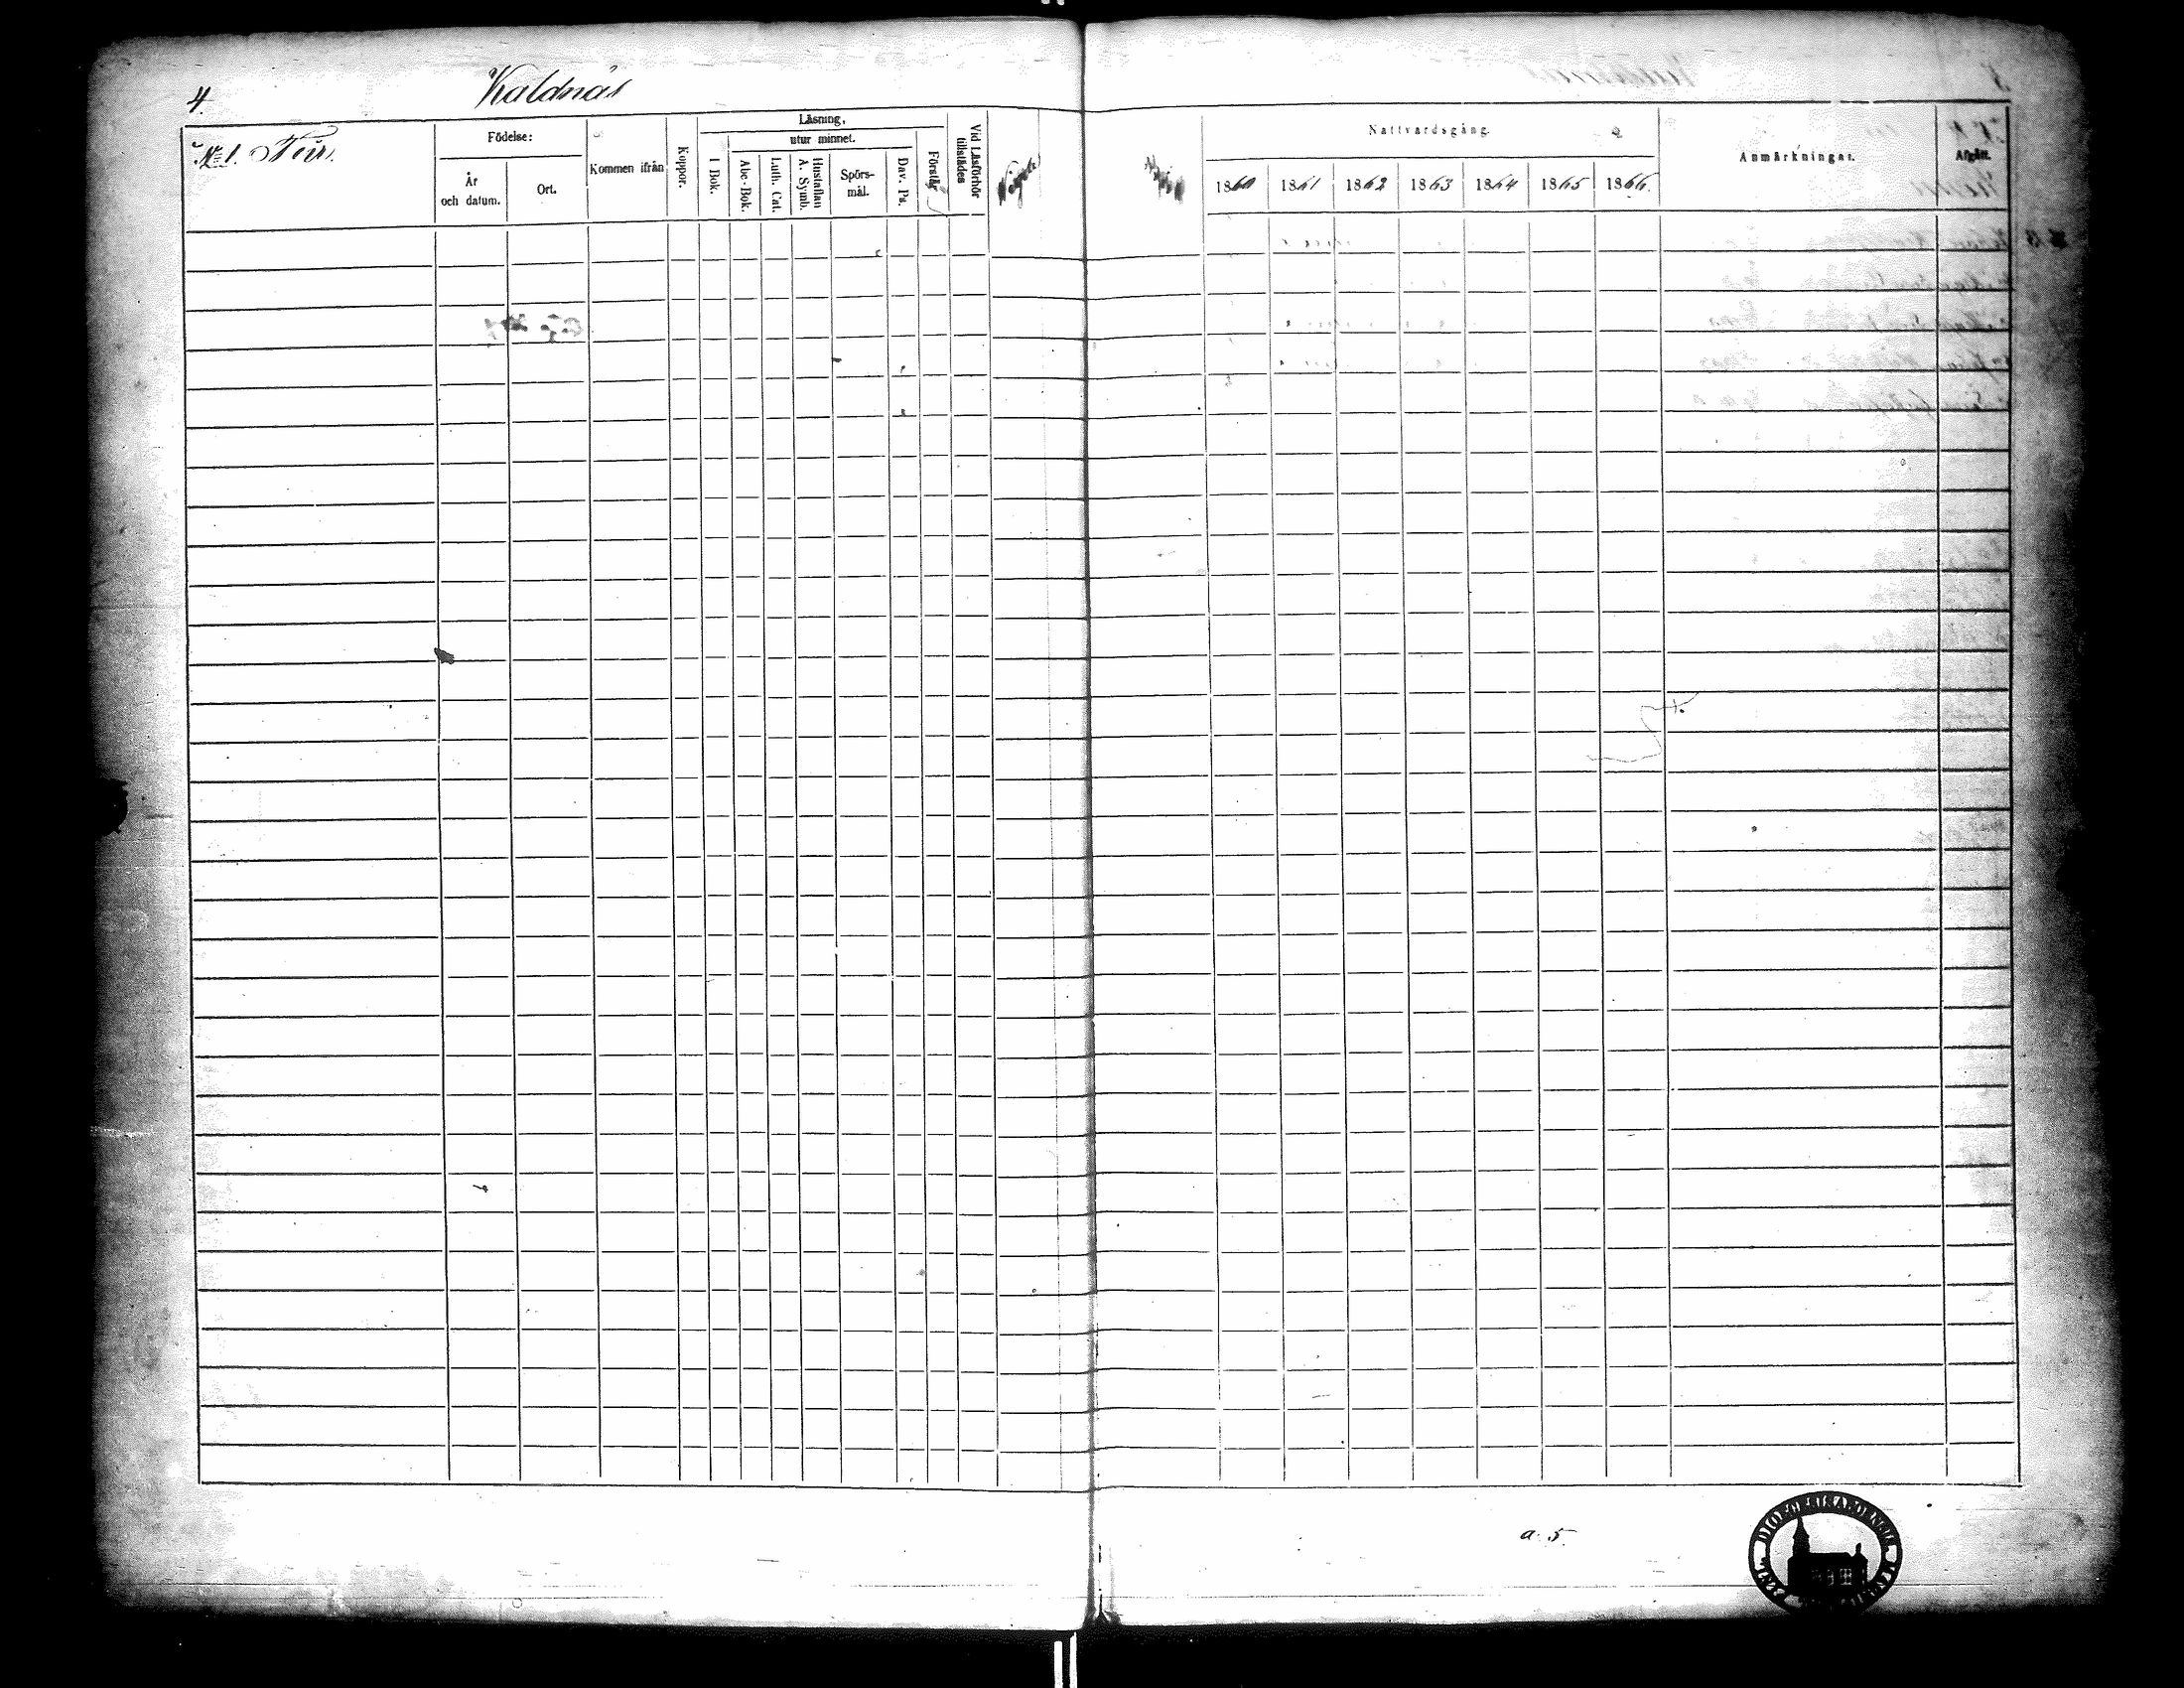 4.
Kaldnäs
№ 1.
Födelse:
År
och datum.
Ort.
Kommen ifrån
Koppor.
Läsning,
I Bok.
utur minnet.
Abc-Bok.
Luth. Cat.
Hustaflan
A. Symb.
Spörs-
mål.
Dav. Ps.
Förstår
Vid Läsförhör
tillstädes
Nattvardsgång.
1860
1861
1862
1863
1864
1865
1866.
Anmärkningar.
Afgått.
a. 5.